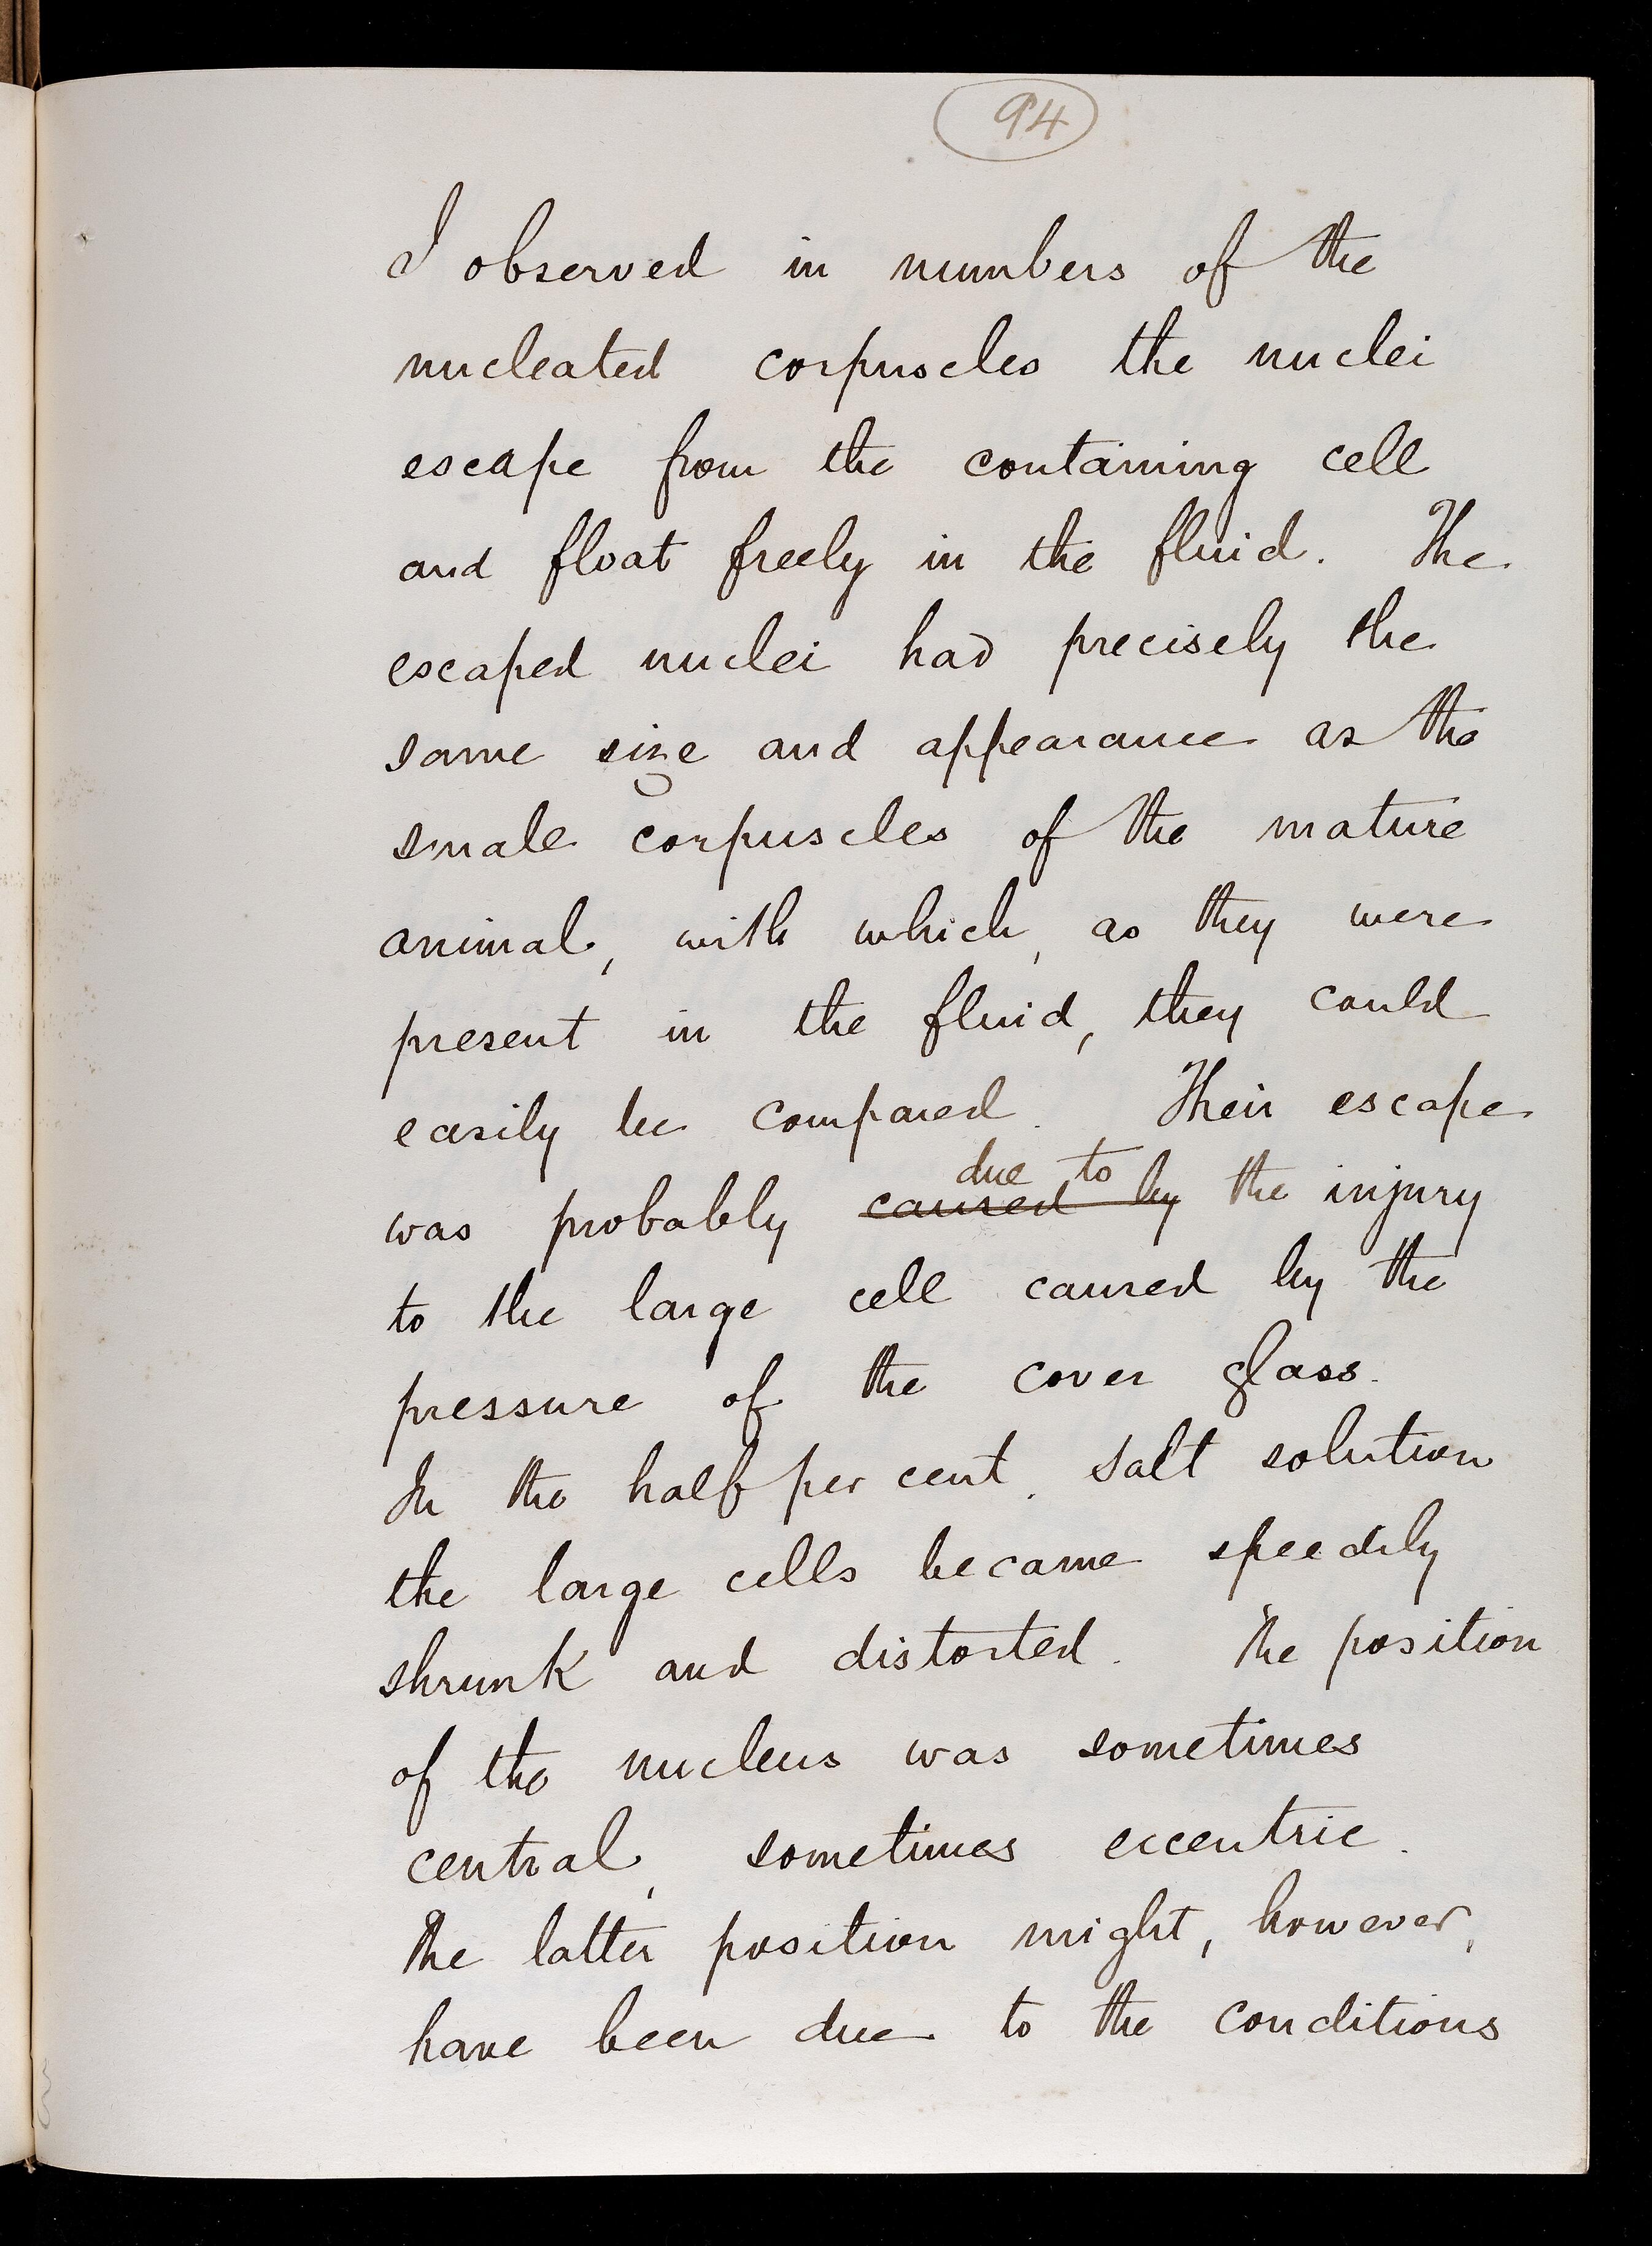 94
I observed in numbers of the
nucleated corpuscles the nuclei
escape from the containing cell
and float freely in the fluid. The
escaped nuclei had precisely the
same size and appearance as the
small corpuscles of the mature
animal, with which, as they were
present in the fluid, they could
easily be compared. Their escape
due to
was probably caused by the injury
to the large cell caused by the
pressure of the cover glass.
In the half per cent. salt solution
the large cells became speedily
shrunk and distorted. The position
of the nucleus was sometimes
central, sometimes eccentric.
The latter position might, however,
have been due to the conditions